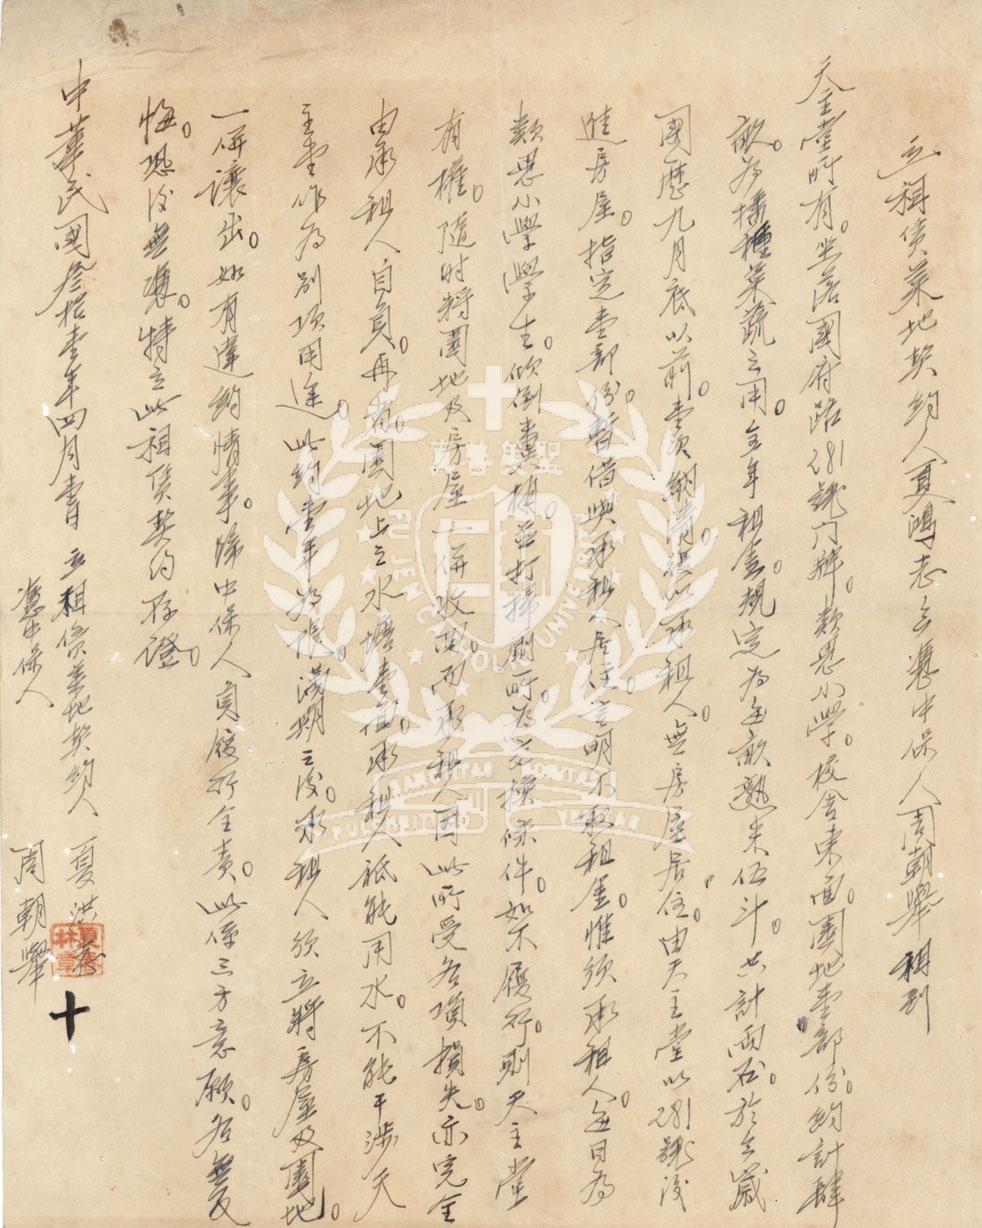 立租賃菜地契約人夏鴻志立憑中保人周朝舉租到
天主堂所有。坐落國府路281號门牌。類思小學。校舍東面。園地壹部份。約計肆
畝。為播種菜蔬之用。全年租金。規定為每畝熟米伍斗。共計兩石。於每歲
國歷九月底以前。壹次納清。祇以承租人。無房屋居住。由天主堂以281號後
進房屋。指定壹部份。暫借與承租人居住。言明不取租金。惟須承租人每日為
類思小學學生。倾倒糞桶。並打掃厠所。為交換條件。如不履行。則天主堂
有權。隨时將園地及房屋一併收囬。而承租人因此所受各項損失。亦完全
由承租人自負。再者。園地上之水塘壹個。承租人祗能用水。不能干涉天
主堂作為別項用途。此約壹年為限。滿期之後。承租人須立將房屋及園地。
一併讓出。如有違約情事。歸中保人負履行全責。此係三方意願。各無反
悔。恐後無憑。特立此租賃契約存證。
中華民國叁拾壹年四月壹日 立租賃菜地契約人 夏洪志
憑中保人 周朝舉
十
聖雙譽蘇
FU JEN CATHOLIC UNIVERSITY